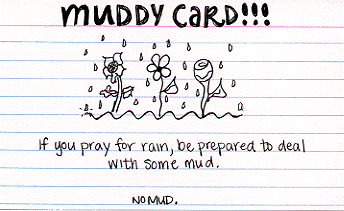 MUDDY CARD!!!
If you pray for rain, be prepared to deal
with some mud.
NO MUD.